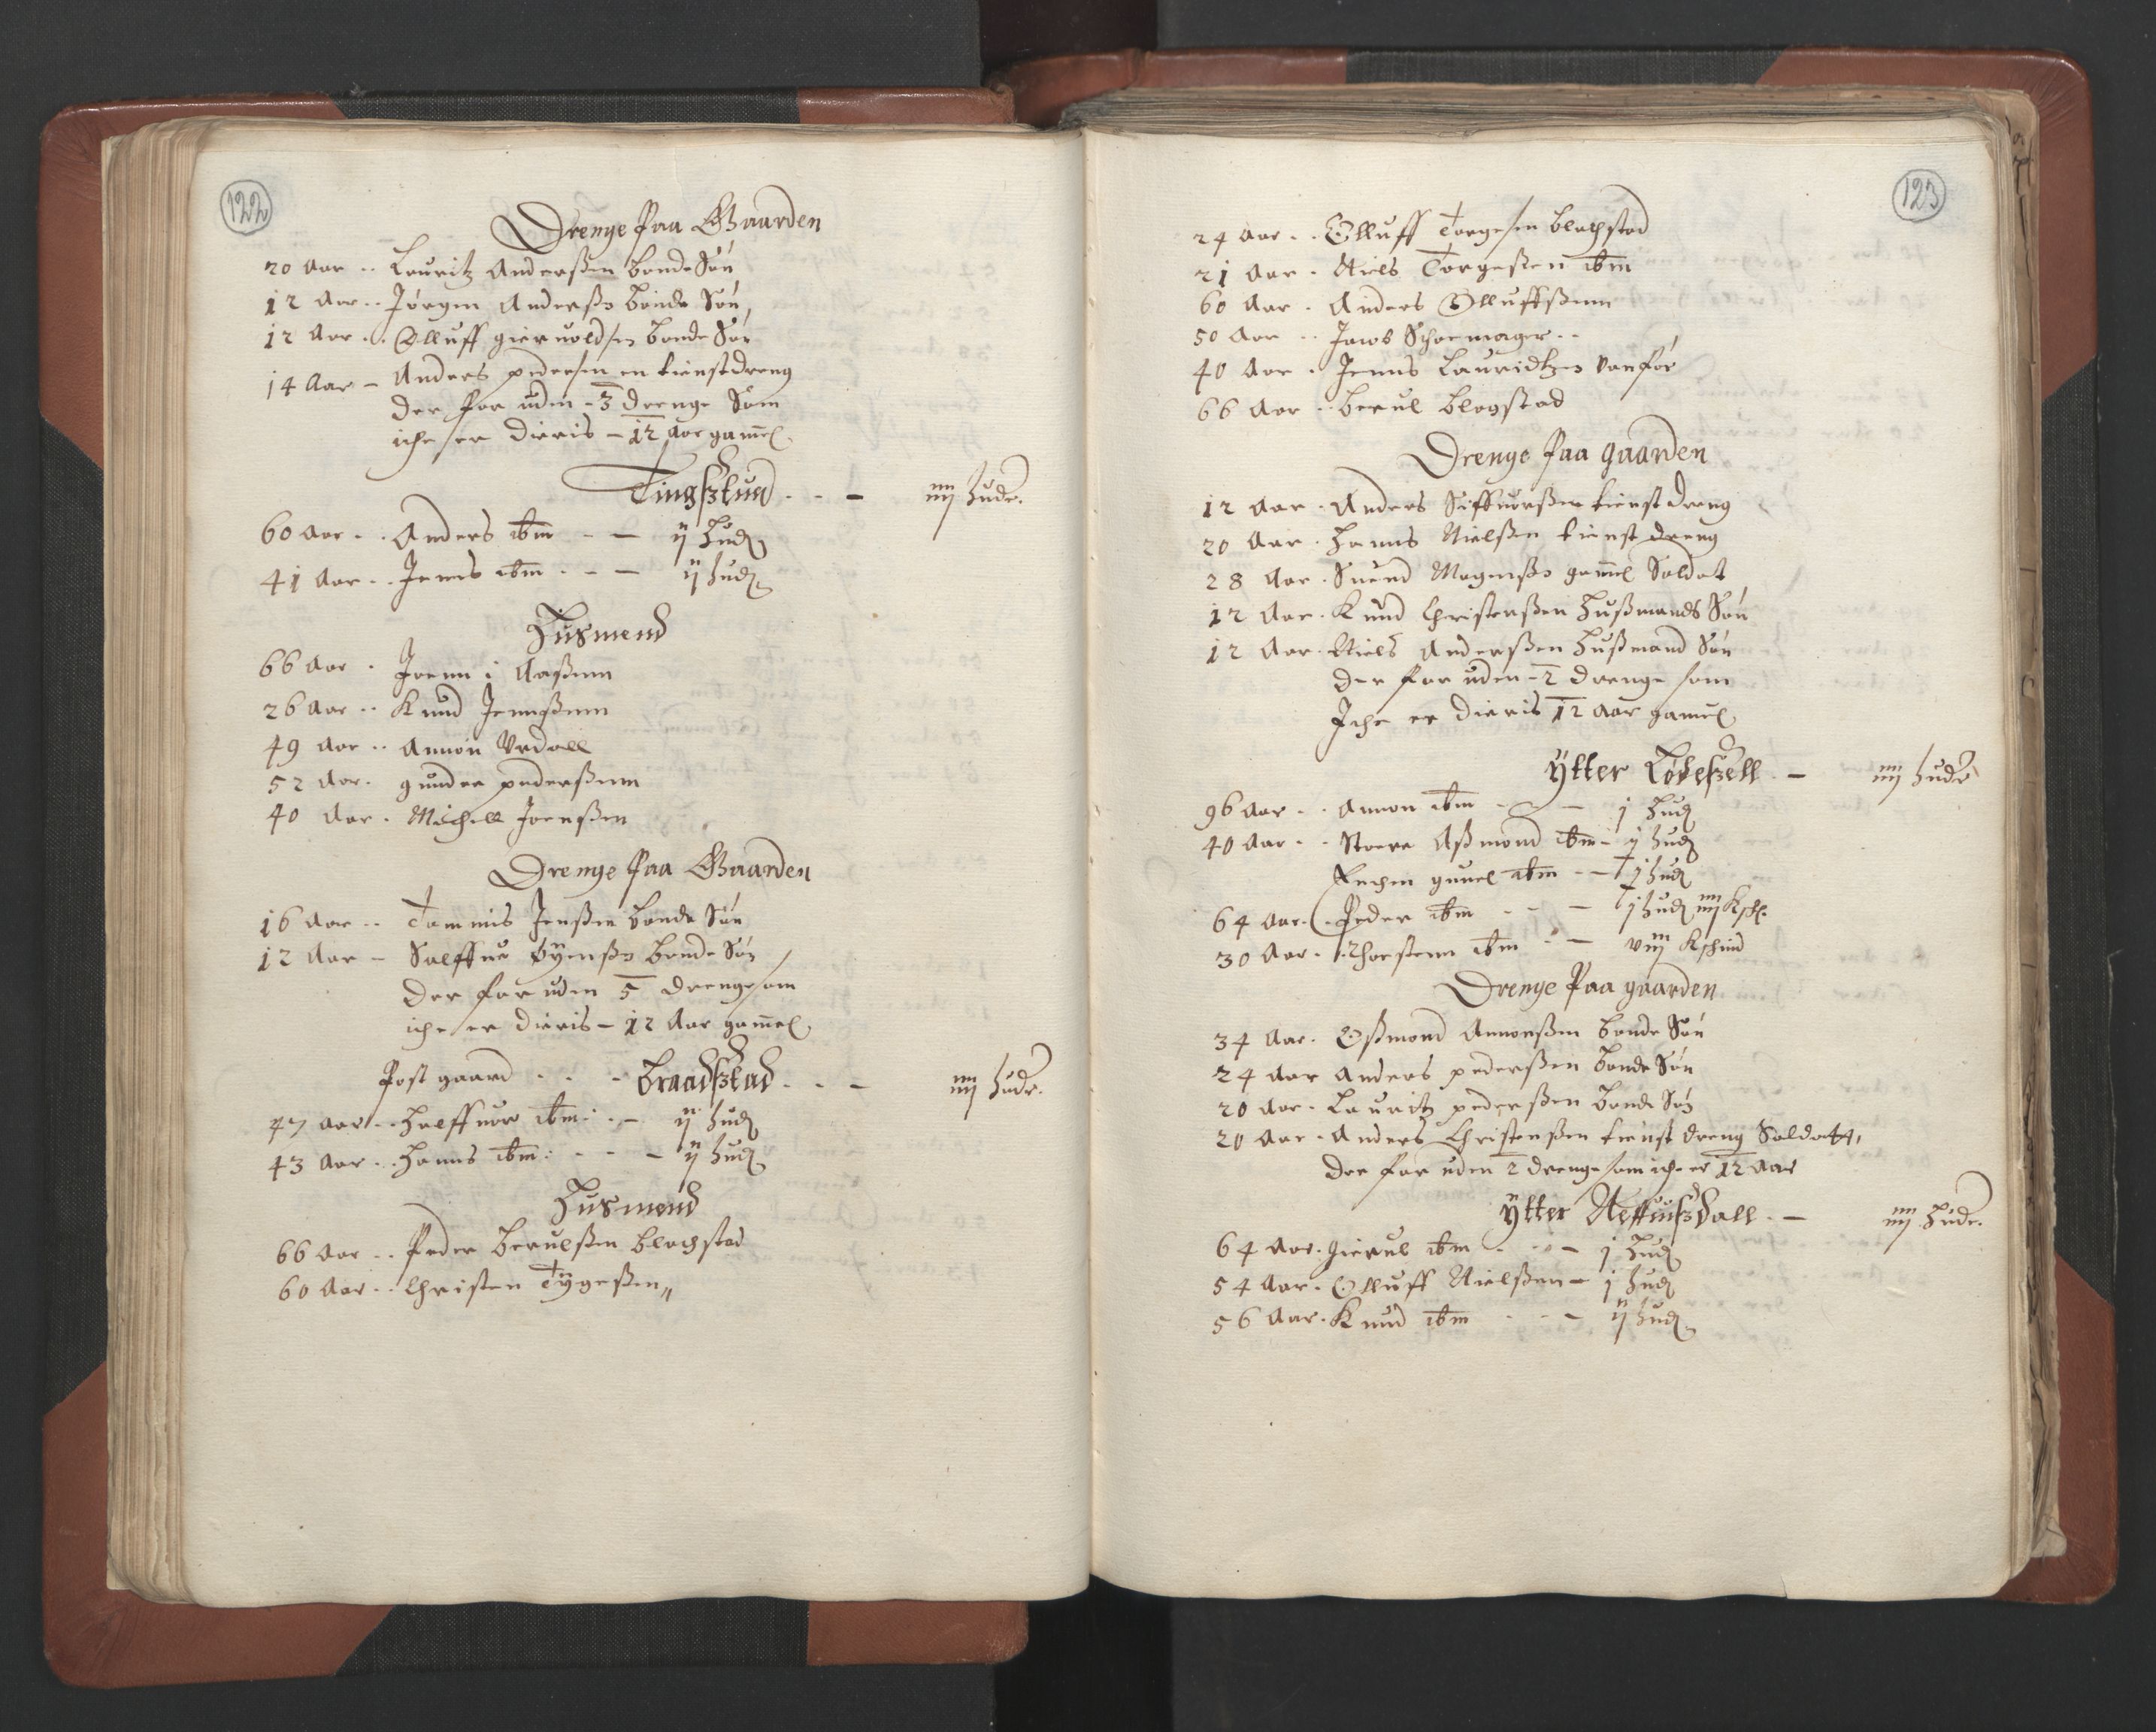 122
Drenge Paa Gaarden
20 Aar .. Lauritz Anderßen bonde Søn
12 Aar .. Jørgen Anderßs bonde Søn
12 Aar .. Olluff gieruolds/n bonde Søn
14 Aar – Anders peders/n en tienstdreng
der for uden – 3 drenge Som
iche er dieris – 12 Aar gam̄el
Tingßtuad . . – iiij hudr.
60 Aar .. Anders ibm – – ij hud
41 Aar .. Jenns ibm . – – ij hud
Husmend
66 Aar . Joenn i Aaßum
26 Aar .. Knud Jennßenn
49 Aar .. Annon Vrdall
52 Aar . gunder pederßenn
40 Aar . Michell Joenßen
Drenge Paa Gaarden
16 Aar .. Tommis Jenßen bonde Søn
12 Aar – Salffue Øyenßs bonde Søn
der for uden 5 drenge som
iche er dieris – 12 Aar gam̄el
Post gaard . . – braadßtad . . – iiij hudr.
47 Aar .. Halffuor ibm: . – ij hud
43 Aar .. Hanns ibm: . – – ij hud
Husmend
66 Aar .. Peder Berulßen blachstad
60 Aar .. Christen Tygeßen
123
24 Aar .. Olluff Torges/en blachstad
21 Aar . Niels Torgeßen ibm
60 Aar . Anders Olluffßenn
50 Aar .. Jacob Schoemager ..
40 Aar . Jenns Lauridtzen vanfør
66 Aar .. berul blagstad
Drenge Paa gaarden
12 Aar . Anders Siffuorßen tienst dreng
20 Aar . Hanns Nielßen tienst dreng
28 Aar . Suend Mogenßs gam̄el Soldat
12 Aar . Knud Christenßen Hußmands Søn
12 Aar . Niels Anderßen Hußmand Søn
der for uden – 2 drenge som
Iche er dieris 12 Aar gam̄el
Ytter Løbeßell . – iiij hudr
96 Aar .. Annon ibm – – j hud
40 Aar .. Stoere Aßmond ibm – j hud
Enchen gunel ibm – – j hud
64 Aar . Peder ibm . . – j hud iiij Ksch.
30 Aar . Thorstenn ibm . – viij Kschind
Drenge Paa gaarden
34 Aar . Oßmond Annonßen bonde Søn
24 Aar Anders pederßen bonde Søn
20 Aar . Lauritz pederßen bonde Søn
20 Aar . Anders Christenßen tienst dreng Soldatt,
der for uden 2 drenge som iche er 12 Aar
Ytter Reffuißdall . – iiij Hudr.
64 Aar . gierul ibm . . – j hud
54 Aar . Olluff Nielßen – j hud
56 Aar . Knud ibm . . – ij hud